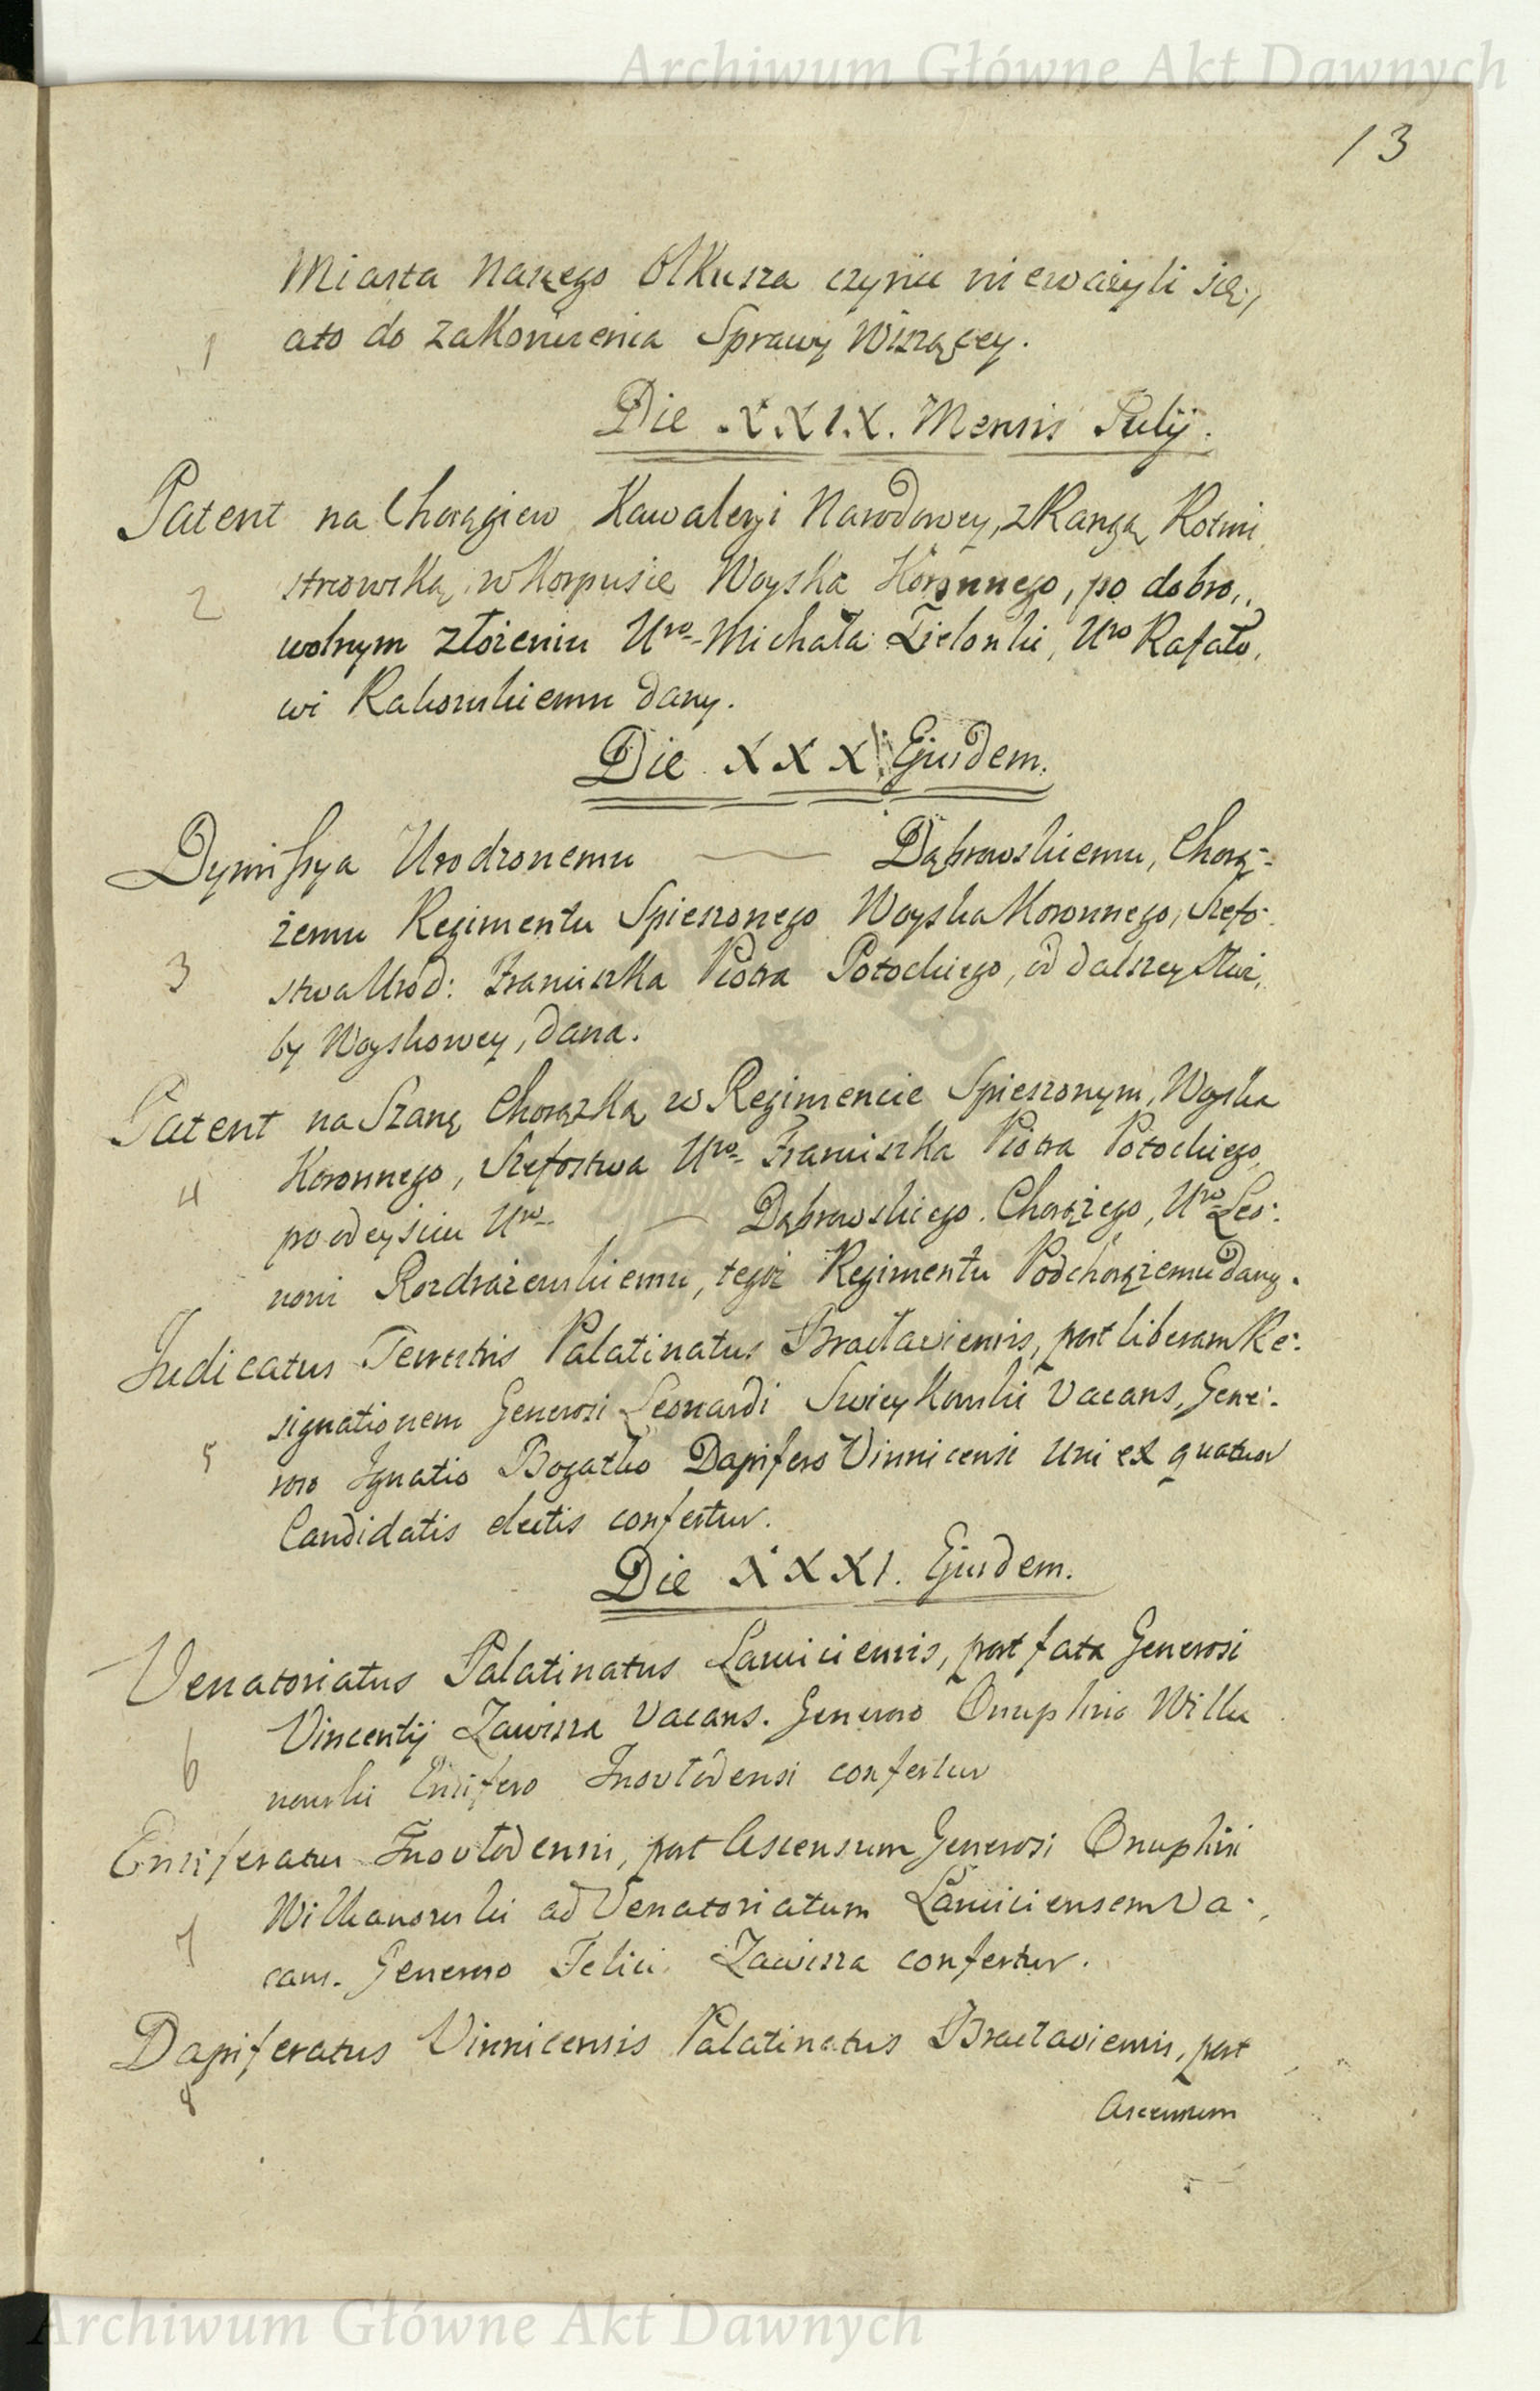 Archiwum Główne Akt Dawnych
13
Miasta Naszego Olkusza czynić nieważyli się,
1 ato do zakończenia Sprawy Wiszącey.
Die XXIX. Mensis Julij.
Patent na Chorągiew Kawaleryi Narodowey, z Rangą Rotmi
2 strzowską, w Korpusie Woyska Koronnego, po dobro,,
wolnym złożeniu Uro- Michała Zielonki, Uro Rafało,
wi Rakowskiemu dany.
Die XXX Ejusdem.
Dymissya Urodzonemu —— Dąbrowskiemu, Chorą-
żemu Regimentu Spieszonego Woyska Koronnego, Szefo-
3 stwa Urod: Franciszka Piotra Potockiego, od dalszey Służ,
by Woyskowey, dana.
Patent na Szarżę Chorążką w Regimencie Spieszonym, Woyska
Koronnego, Szefostwa Uro- Franciszka Piotra Potockiego,
4 po odeyściu Uro- — Dąbrowskiego Chorążego, Uro Leo:
nowi Rozdrażewskiemu, tegoż Regimentu Podchorążemu dany.
Judicatus Terrestris Palatinatus Braclaviensis, post liberam Re:
signationem Generosi Leonardi Swieykowski vacans, Gene:
5 roso Ignatio Bogatko Dapifero Vinnicensi uni ex quatuor
Candidatis electis confertur.
Die XXXI. Ejusdem.
Venatoriatus Palatinatus Lanciciensis, post fata Generosi
Vincentij Zawisza vacans. Generoso Onuphrio Wilka
6 nowski Ensifero Inovlodensi confertur
Ensiferatus Inovlodensis, post Ascensum Generosi Onuphrii
Wilkanowski ad Venatoriatum Lanciciensem va-,
7 cans. Generoso Felici Zawisza confertur.
Dapiferatus Vinnicensis Palatinatus Braclaviensis, post
8
Ascensum
Archiwum Główne Akt Dawnych